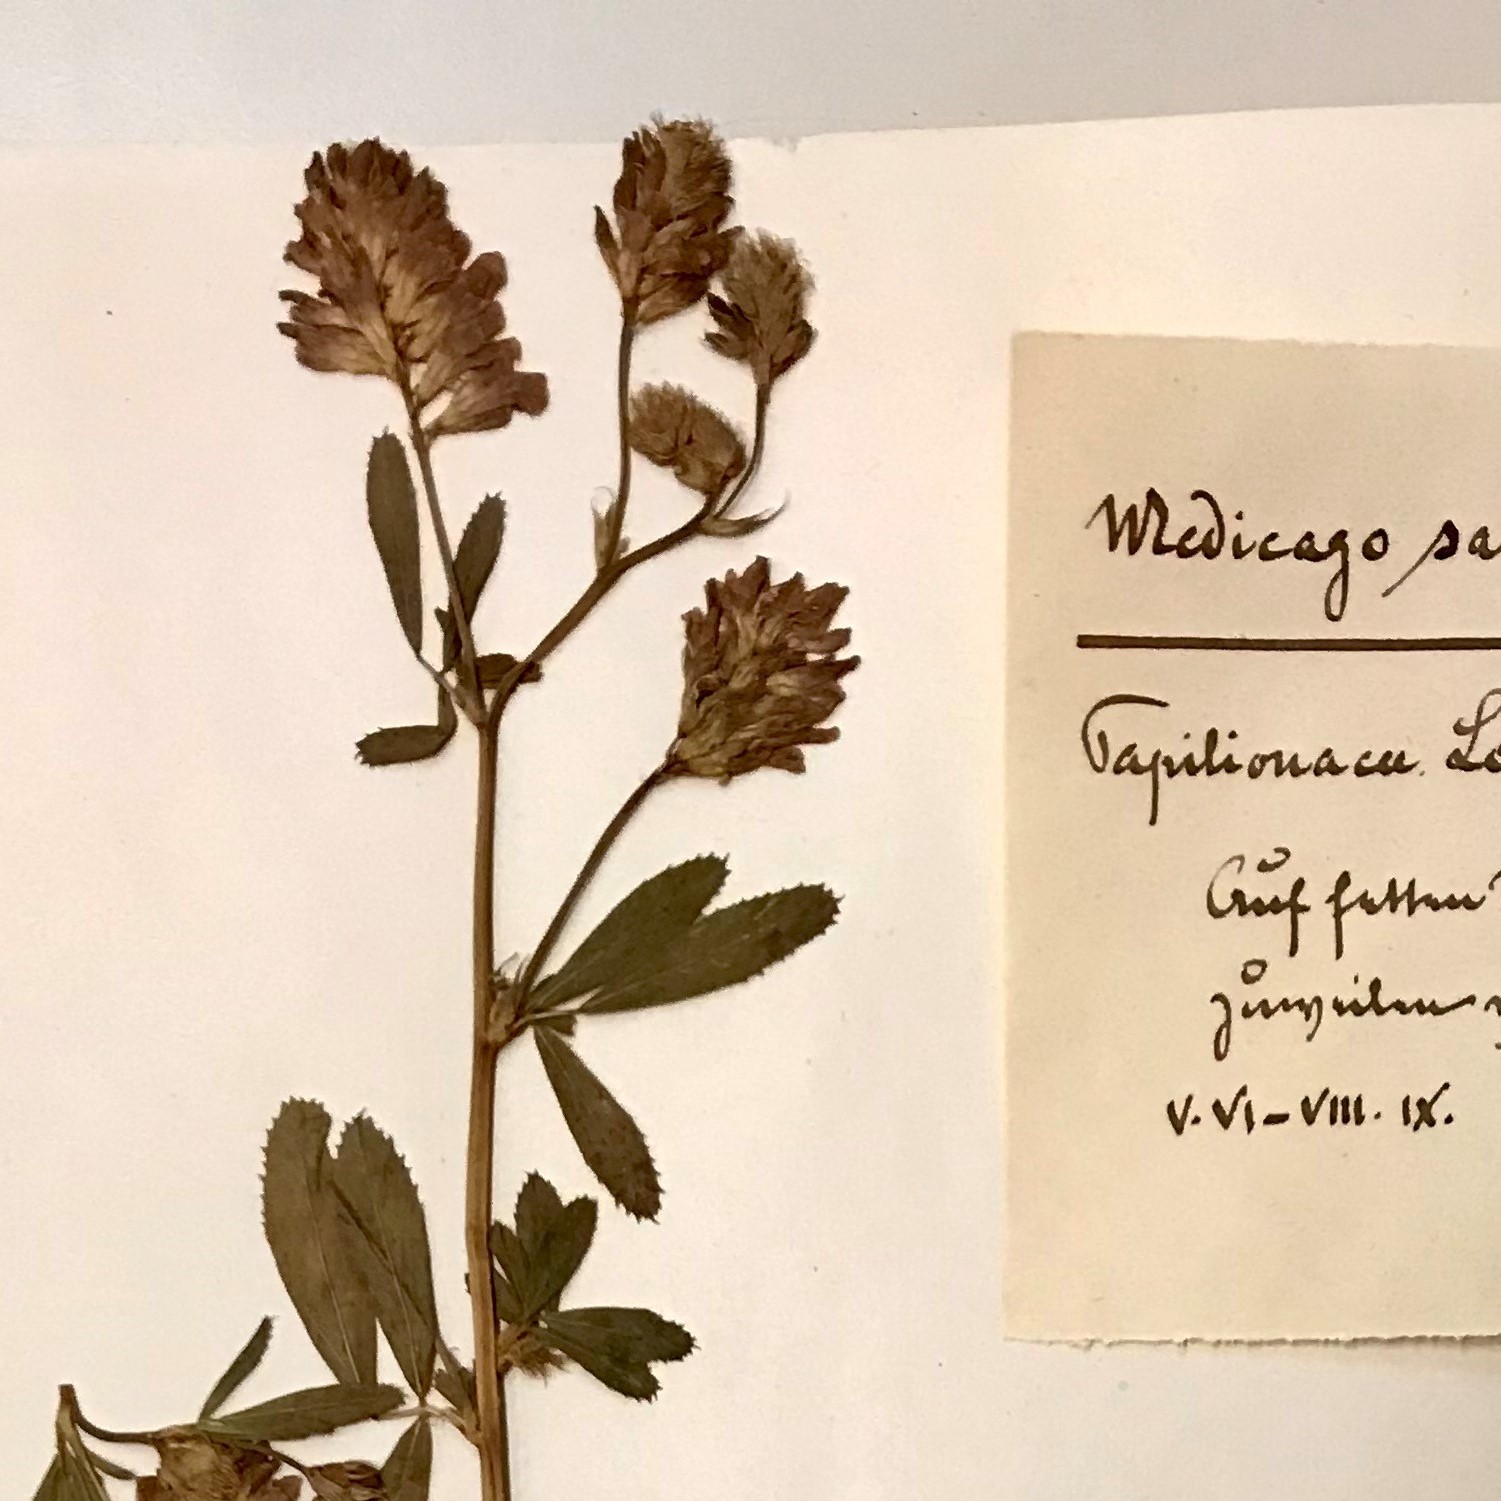 Medicago sa
Papilionacee. Le
Auf fetten
zuweilen
V. VI – VIII. IX.